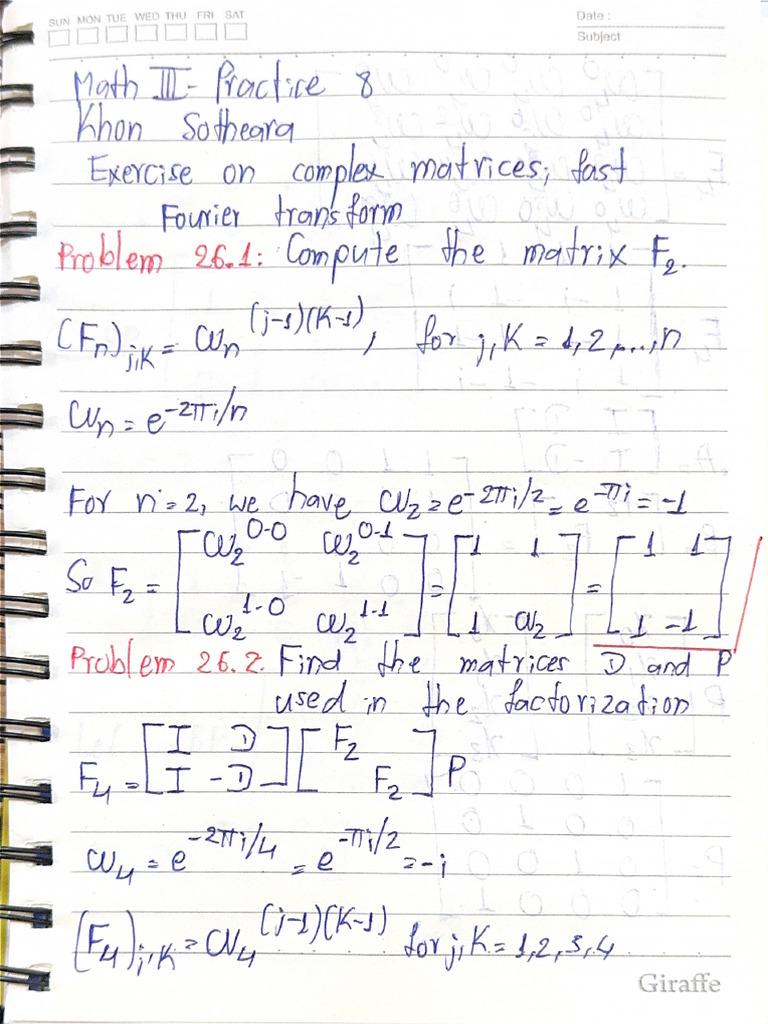 SUN MON TUE WED THU FRI SAT
Date :
Subject
Math III - Practice 8
Khon Sotheara
Exercise on complex matrices; fast
Fourier transform
Problem 26.1: Compute the matrix F₂.
(Fₙ)ⱼ,ₖ = ωₙ^(j-1)(K-1), for j,K = 1,2,...,n
ωₙ = e^-2πi/n
For n=2, we have ω₂ = e^-2πi/2 = e^-πi = -1
So F₂ = [ω₂^0·0 ω₂^0·1; ω₂^1·0 ω₂^1·1] = [1 1; 1 ω₂] = [1 1; 1 -1]
Problem 26.2. Find the matrices D and P
used in the factorization
F₄ = [I D; I -D] [F₂ ; F₂] P
ω₄ = e^-2πi/4 = e^-πi/2 = -i
(F₄)ⱼ,ₖ = ω₄^(j-1)(K-1) for j,K = 1,2,3,4
Giraffe